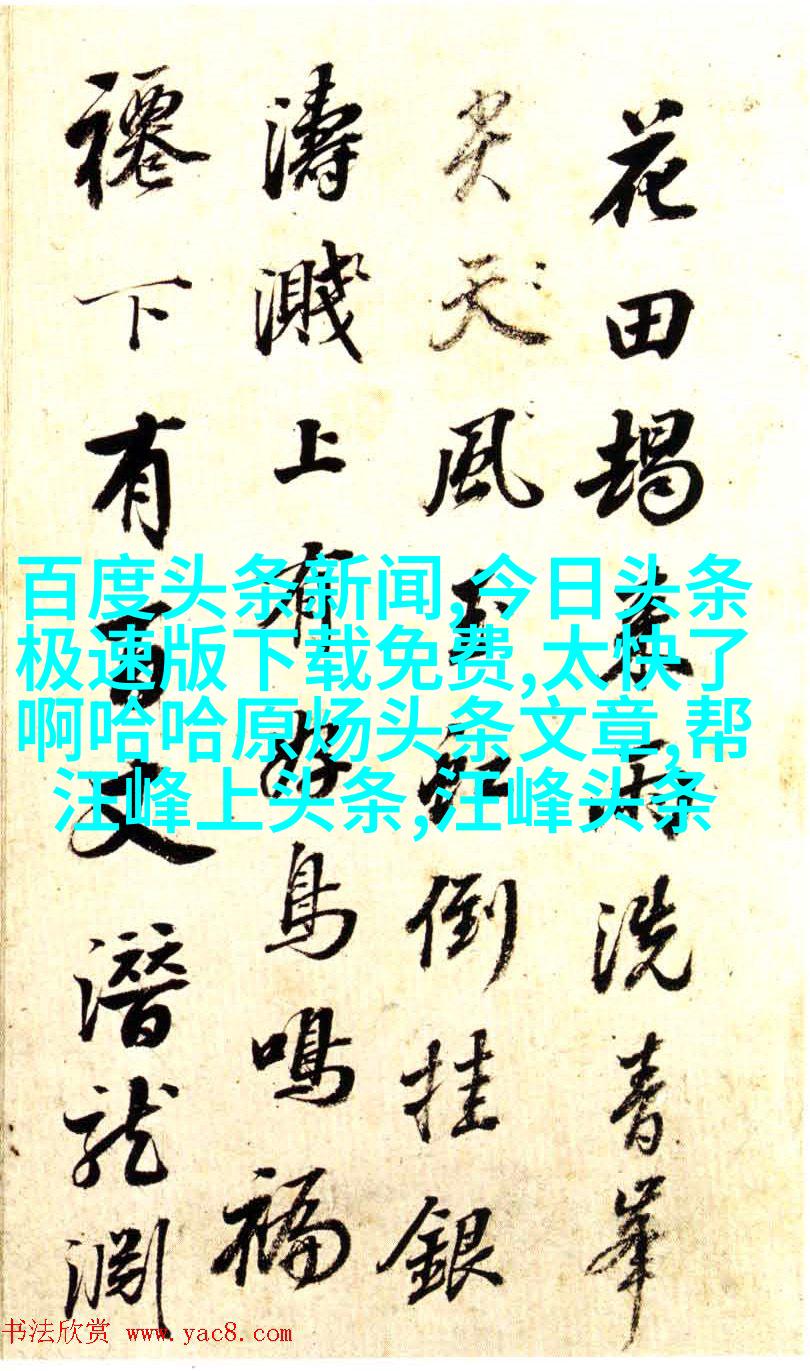 花田朅来雨洗青峯
尖天〻風玉虹倒挂銀
濤濺上有好鳥鳴福
禯下有百丈潛龍淵
百度头条新闻,今日头条
极速版下载免费,太快了
啊哈哈原炀头条文章,帮
汪峰上头条,汪峰头条
书法欣赏 www.yac8.com